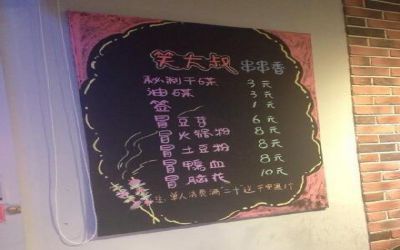 笑大叔 串串香
秘制干碟 3元
油碟 3元
签 1元
冒豆芽 6元
冒火锅粉 8元
冒土豆粉 8元
冒鸭血 8元
冒脑花 10元
注:单人消费满二十送干